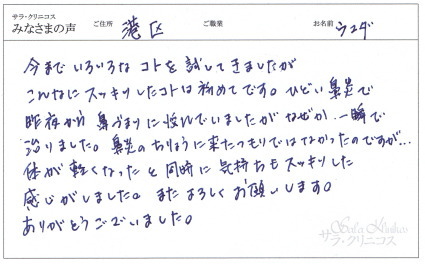 サラ・クリニコス
みなさまの声 ご住所 港区 ご職業 お名前 ウエダ
今までいろいろなコトを試してきましたが
こんなにスッキリしたコトは初めてです。ひどい鼻炎で
昨夜から鼻づまりに悩んでいましたがなぜか、一瞬で
治りました。鼻炎のちりょうに来たつもりではなかったのですが…
体が軽くなったと同時に気持ちもスッキリした
感じがしました。またよろしくお願いします。
ありがとうございました。
サラ・クリニコス